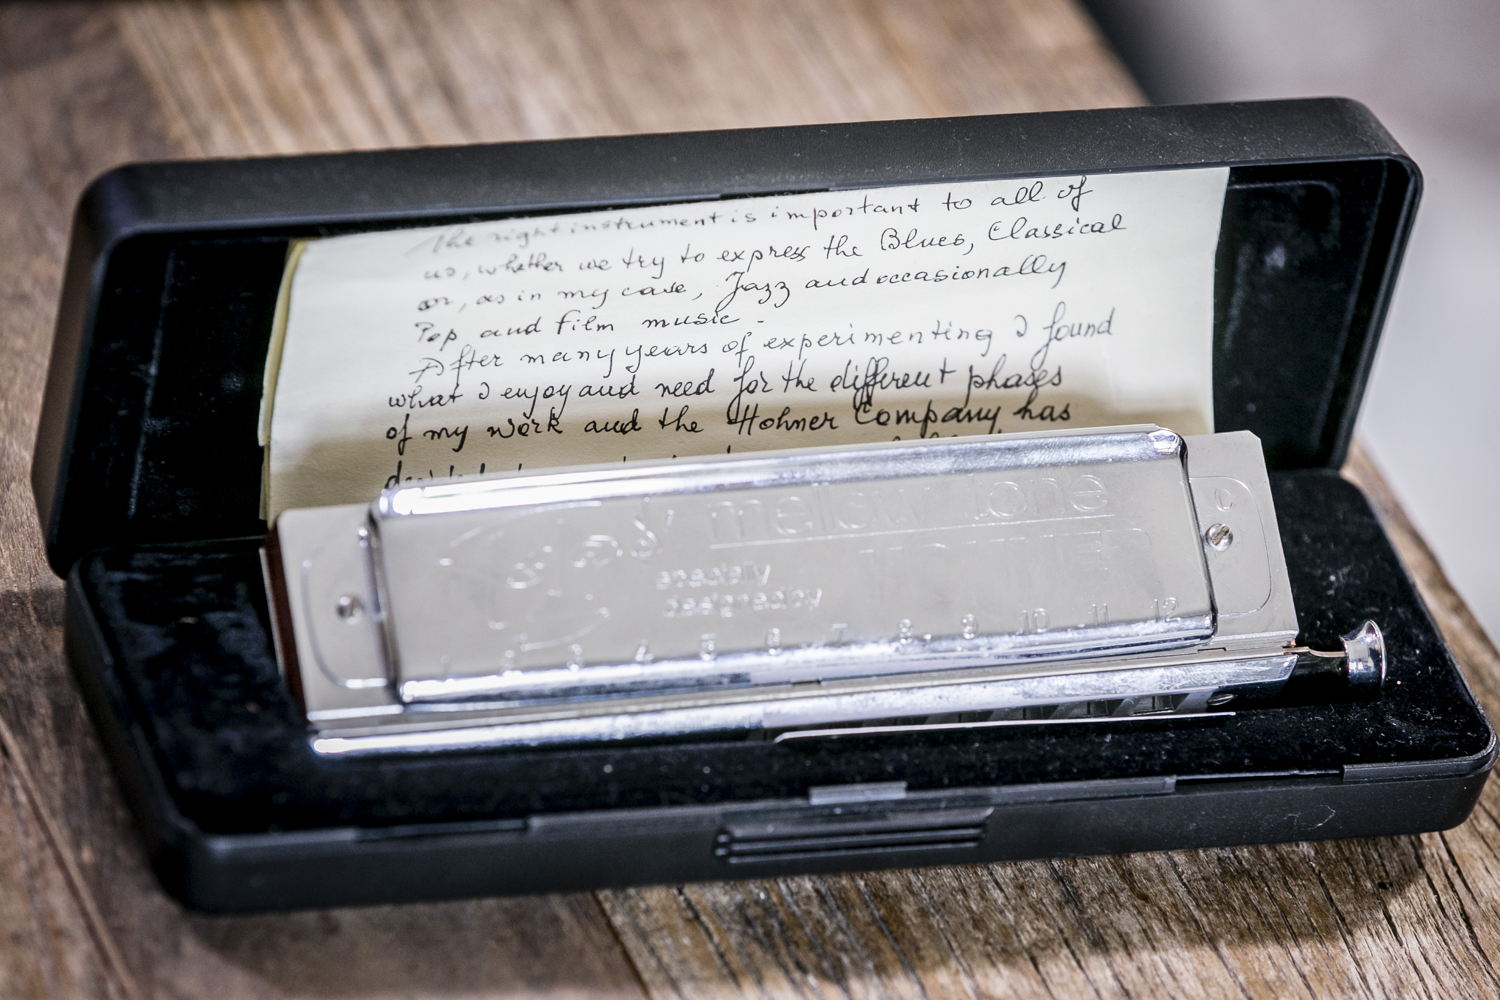 The right instrument is important to all of
us, whether we try to express the Blues, Classical
or, as in my case, Jazz and occasionally
Pop and film music.
After many years of experimenting I found
what I enjoy and need for the different phases
of my work and the Hohner Company has
mellow tone
specially
designed by
1 2 3 4 5 6 7 8 9 10 11 12